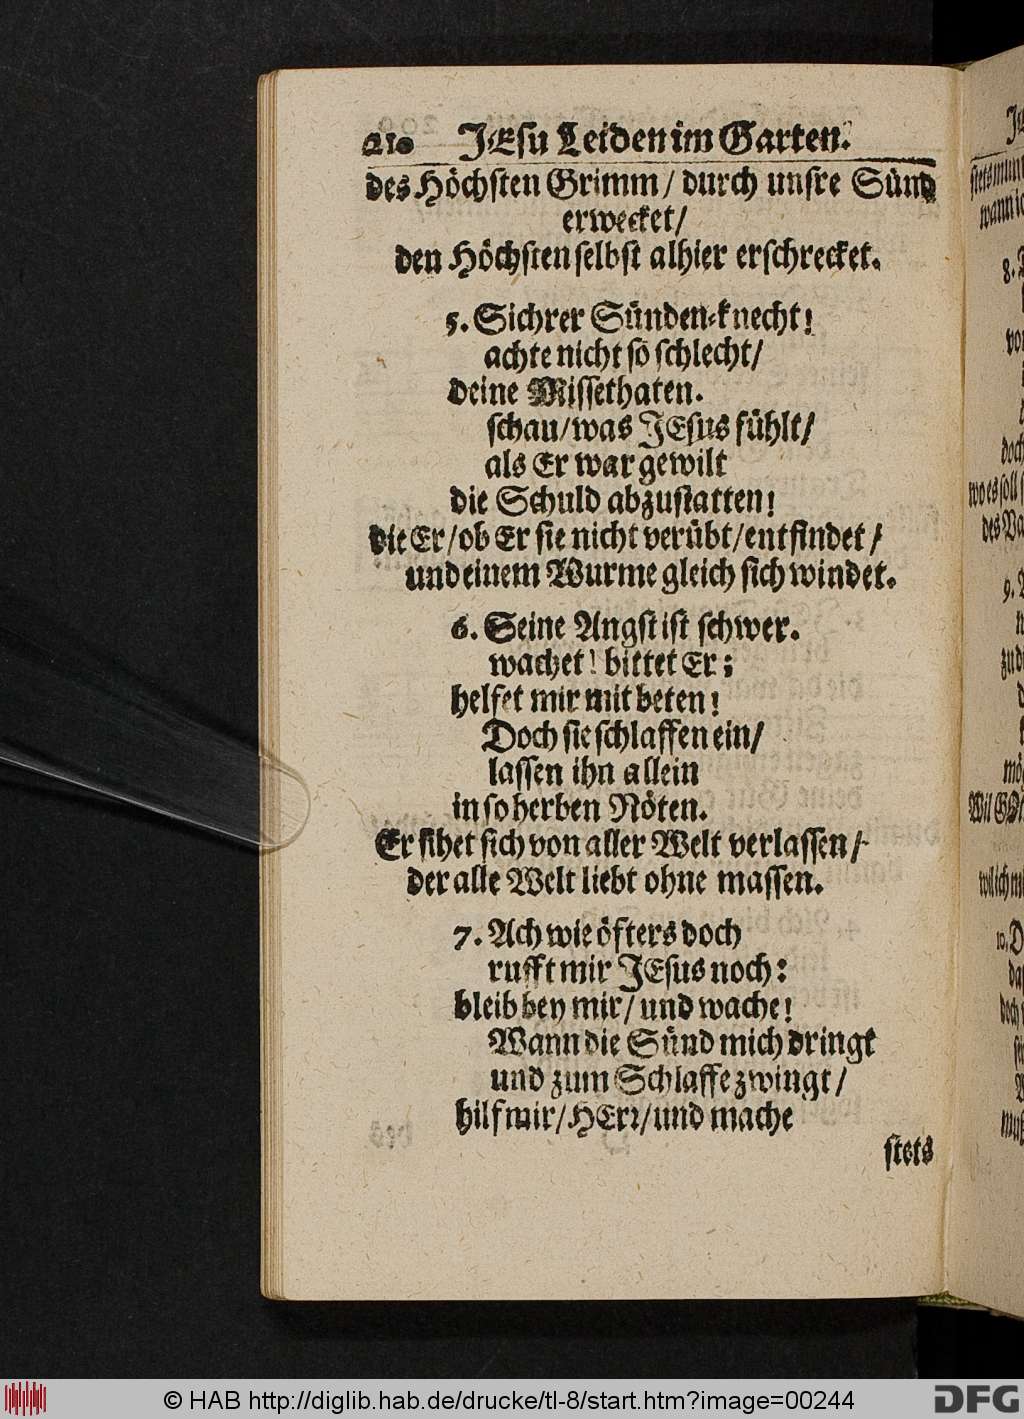 210 JEsu Leiden im Garten.
des Höchsten Grimm / durch unsre Sünd
erwecket /
den Höchsten selbst alhier erschrecket.
5. Sichrer Sünden-knecht!
achte nicht so schlecht /
deine Missethaten.
schau / was JEsus fühlt /
als Er war gewilt
die Schuld abzustatten!
die Er / ob Er sie nicht verübt / entfindet /
und einem Wurme gleich sich windet.
6. Seine Angst ist schwer.
wachet! bittet Er;
helfet mir mit beten!
Doch sie schlaffen ein /
lassen ihn allein
in so herben Nöten.
Er sihet sich von aller Welt verlassen /
der alle Welt liebt ohne massen.
7. Ach wie öfters doch
rufft mir JEsus noch:
bleib bey mir / und wache!
Wann die Sünd mich dringt
und zum Schlaffe zwingt /
hilf mir / HErr / und mache
stets
© HAB http://diglib.hab.de/drucke/tl-8/start.htm?image=00244
DFG